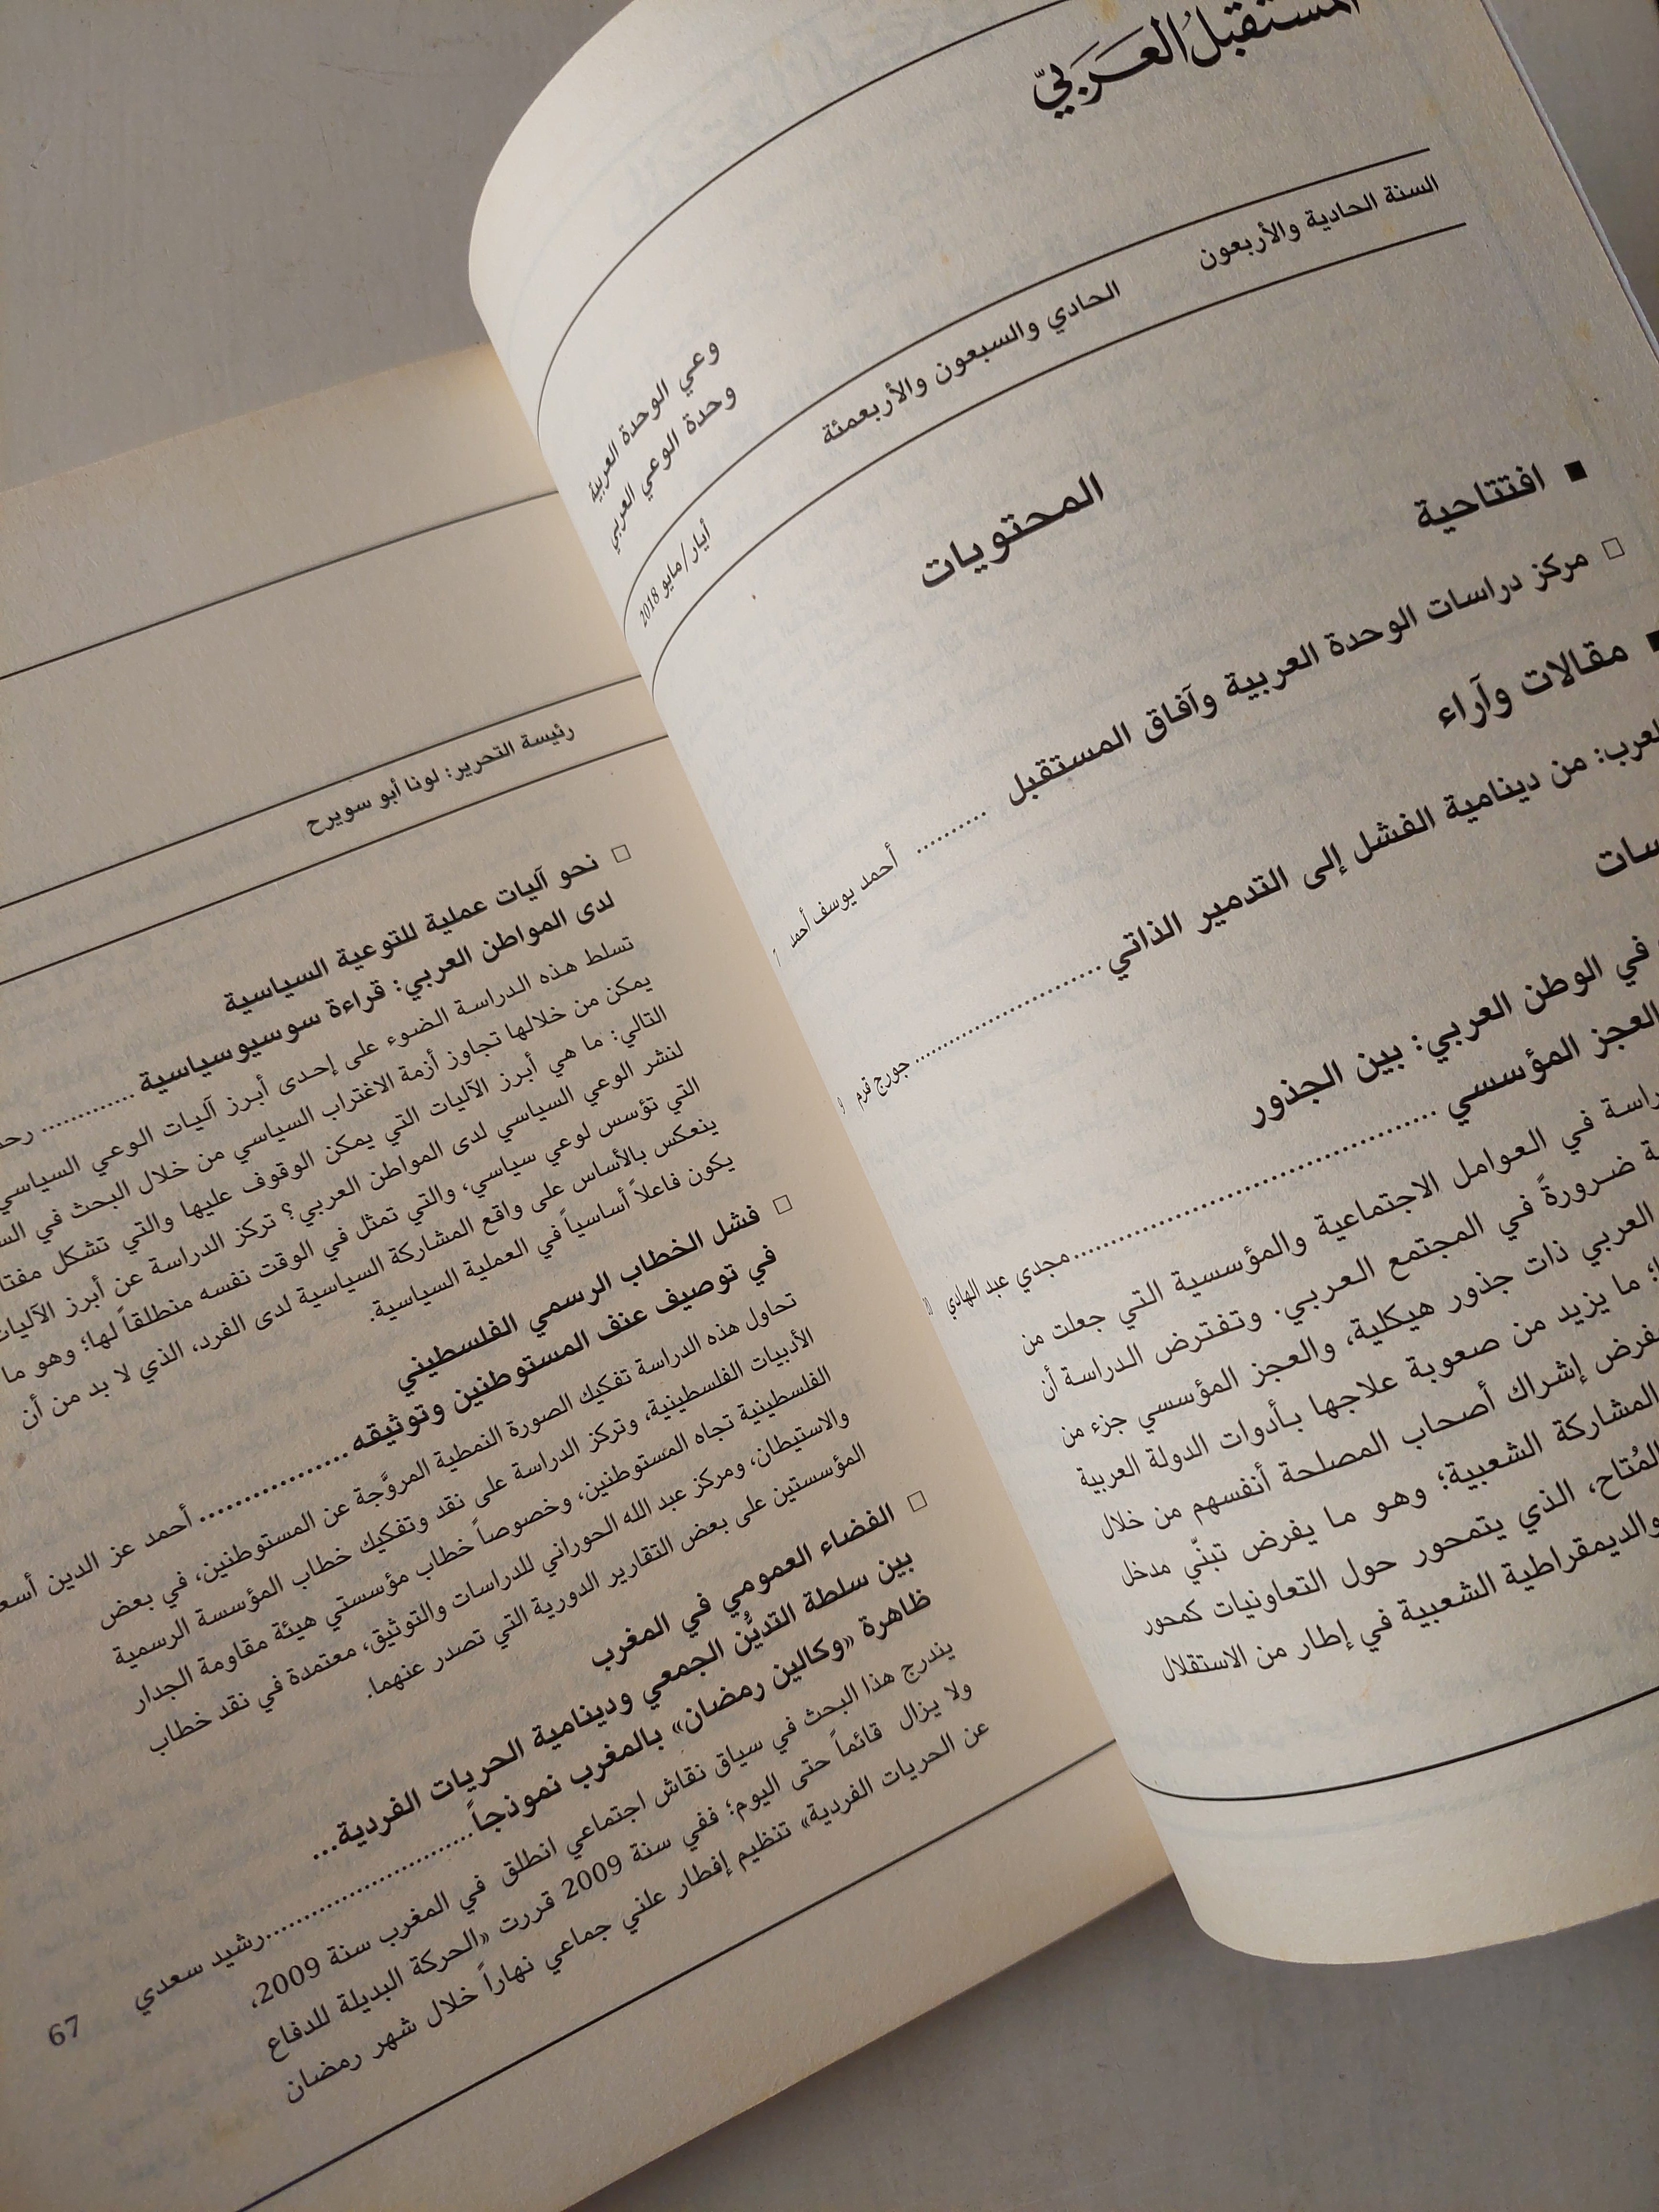 المستقبل العربي
وعي الوحدة العربية
وحدة الوعي العربي
السنة الحادية والأربعون الحادي والسبعون والأربعمئة أيار/مايو 2018
المحتويات
■ افتتاحية
□ مركز دراسات الوحدة العربية وآفاق المستقبل ......... أحمد يوسف أحمد
■ مقالات وآراء
العرب: من دينامية الفشل إلى التدمير الذاتي ......... جورج قرم
في الوطن العربي: بين الجذور
العجز المؤسسي ......... مجدي عبد الهادي
في العوامل الاجتماعية والمؤسسية التي جعلت من
ضرورةً في المجتمع العربي. وتفترض الدراسة أن
العربي ذات جذور هيكلية، والعجز المؤسسي جزء من
ما يزيد من صعوبة علاجها بأدوات الدولة العربية
إشراك أصحاب المصلحة أنفسهم من خلال
المشاركة الشعبية؛ وهو ما يفرض تبنّي مدخل
المُتاح، الذي يتمحور حول التعاونيات كمحور
والديمقراطية الشعبية في إطار من الاستقلال
رئيسة التحرير: لونا أبو سويرح
□ نحو آليات عملية للتوعية السياسية
لدى المواطن العربي: قراءة سوسيوسياسية .........
تسلط هذه الدراسة الضوء على إحدى أبرز آليات الوعي السياسي
يمكن من خلالها تجاوز أزمة الاغتراب السياسي من خلال البحث في
التالي: ما هي أبرز الآليات التي يمكن الوقوف عليها والتي تشكل
لنشر الوعي السياسي لدى المواطن العربي؟ تركز الدراسة عن أبرز الآليات
التي تؤسس لوعي سياسي، والتي تمثل في الوقت نفسه منطلقاً لها؛ وهو ما
ينعكس بالأساس على واقع المشاركة السياسية لدى الفرد، الذي لا بد من أن
يكون فاعلاً أساسياً في العملية السياسية.
□ فشل الخطاب الرسمي الفلسطيني
في توصيف عنف المستوطنين وتوثيقه ......... أحمد عز الدين
تحاول هذه الدراسة تفكيك الصورة النمطية المروَّجة عن المستوطنين، في بعض
الأدبيات الفلسطينية، وتركز الدراسة على نقد وتفكيك خطاب المؤسسة الرسمية
الفلسطينية تجاه المستوطنين، وخصوصاً خطاب مؤسستي هيئة مقاومة الجدار
والاستيطان، ومركز عبد الله الحوراني للدراسات والتوثيق، معتمدة في نقد خطاب
المؤسستين على بعض التقارير الدورية التي تصدر عنهما.
□ الفضاء العمومي في المغرب
بين سلطة التديُّن الجمعي ودينامية الحريات الفردية...
ظاهرة «وكالين رمضان» بالمغرب نموذجاً ......... رشيد سعدي 67
يندرج هذا البحث في سياق نقاش اجتماعي انطلق في المغرب سنة 2009،
ولا يزال قائماً حتى اليوم؛ ففي سنة 2009 قررت «الحركة البديلة للدفاع
عن الحريات الفردية» تنظيم إفطار علني جماعي نهاراً خلال شهر رمضان